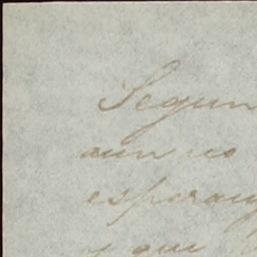 Segun
aun no
esperan
y que